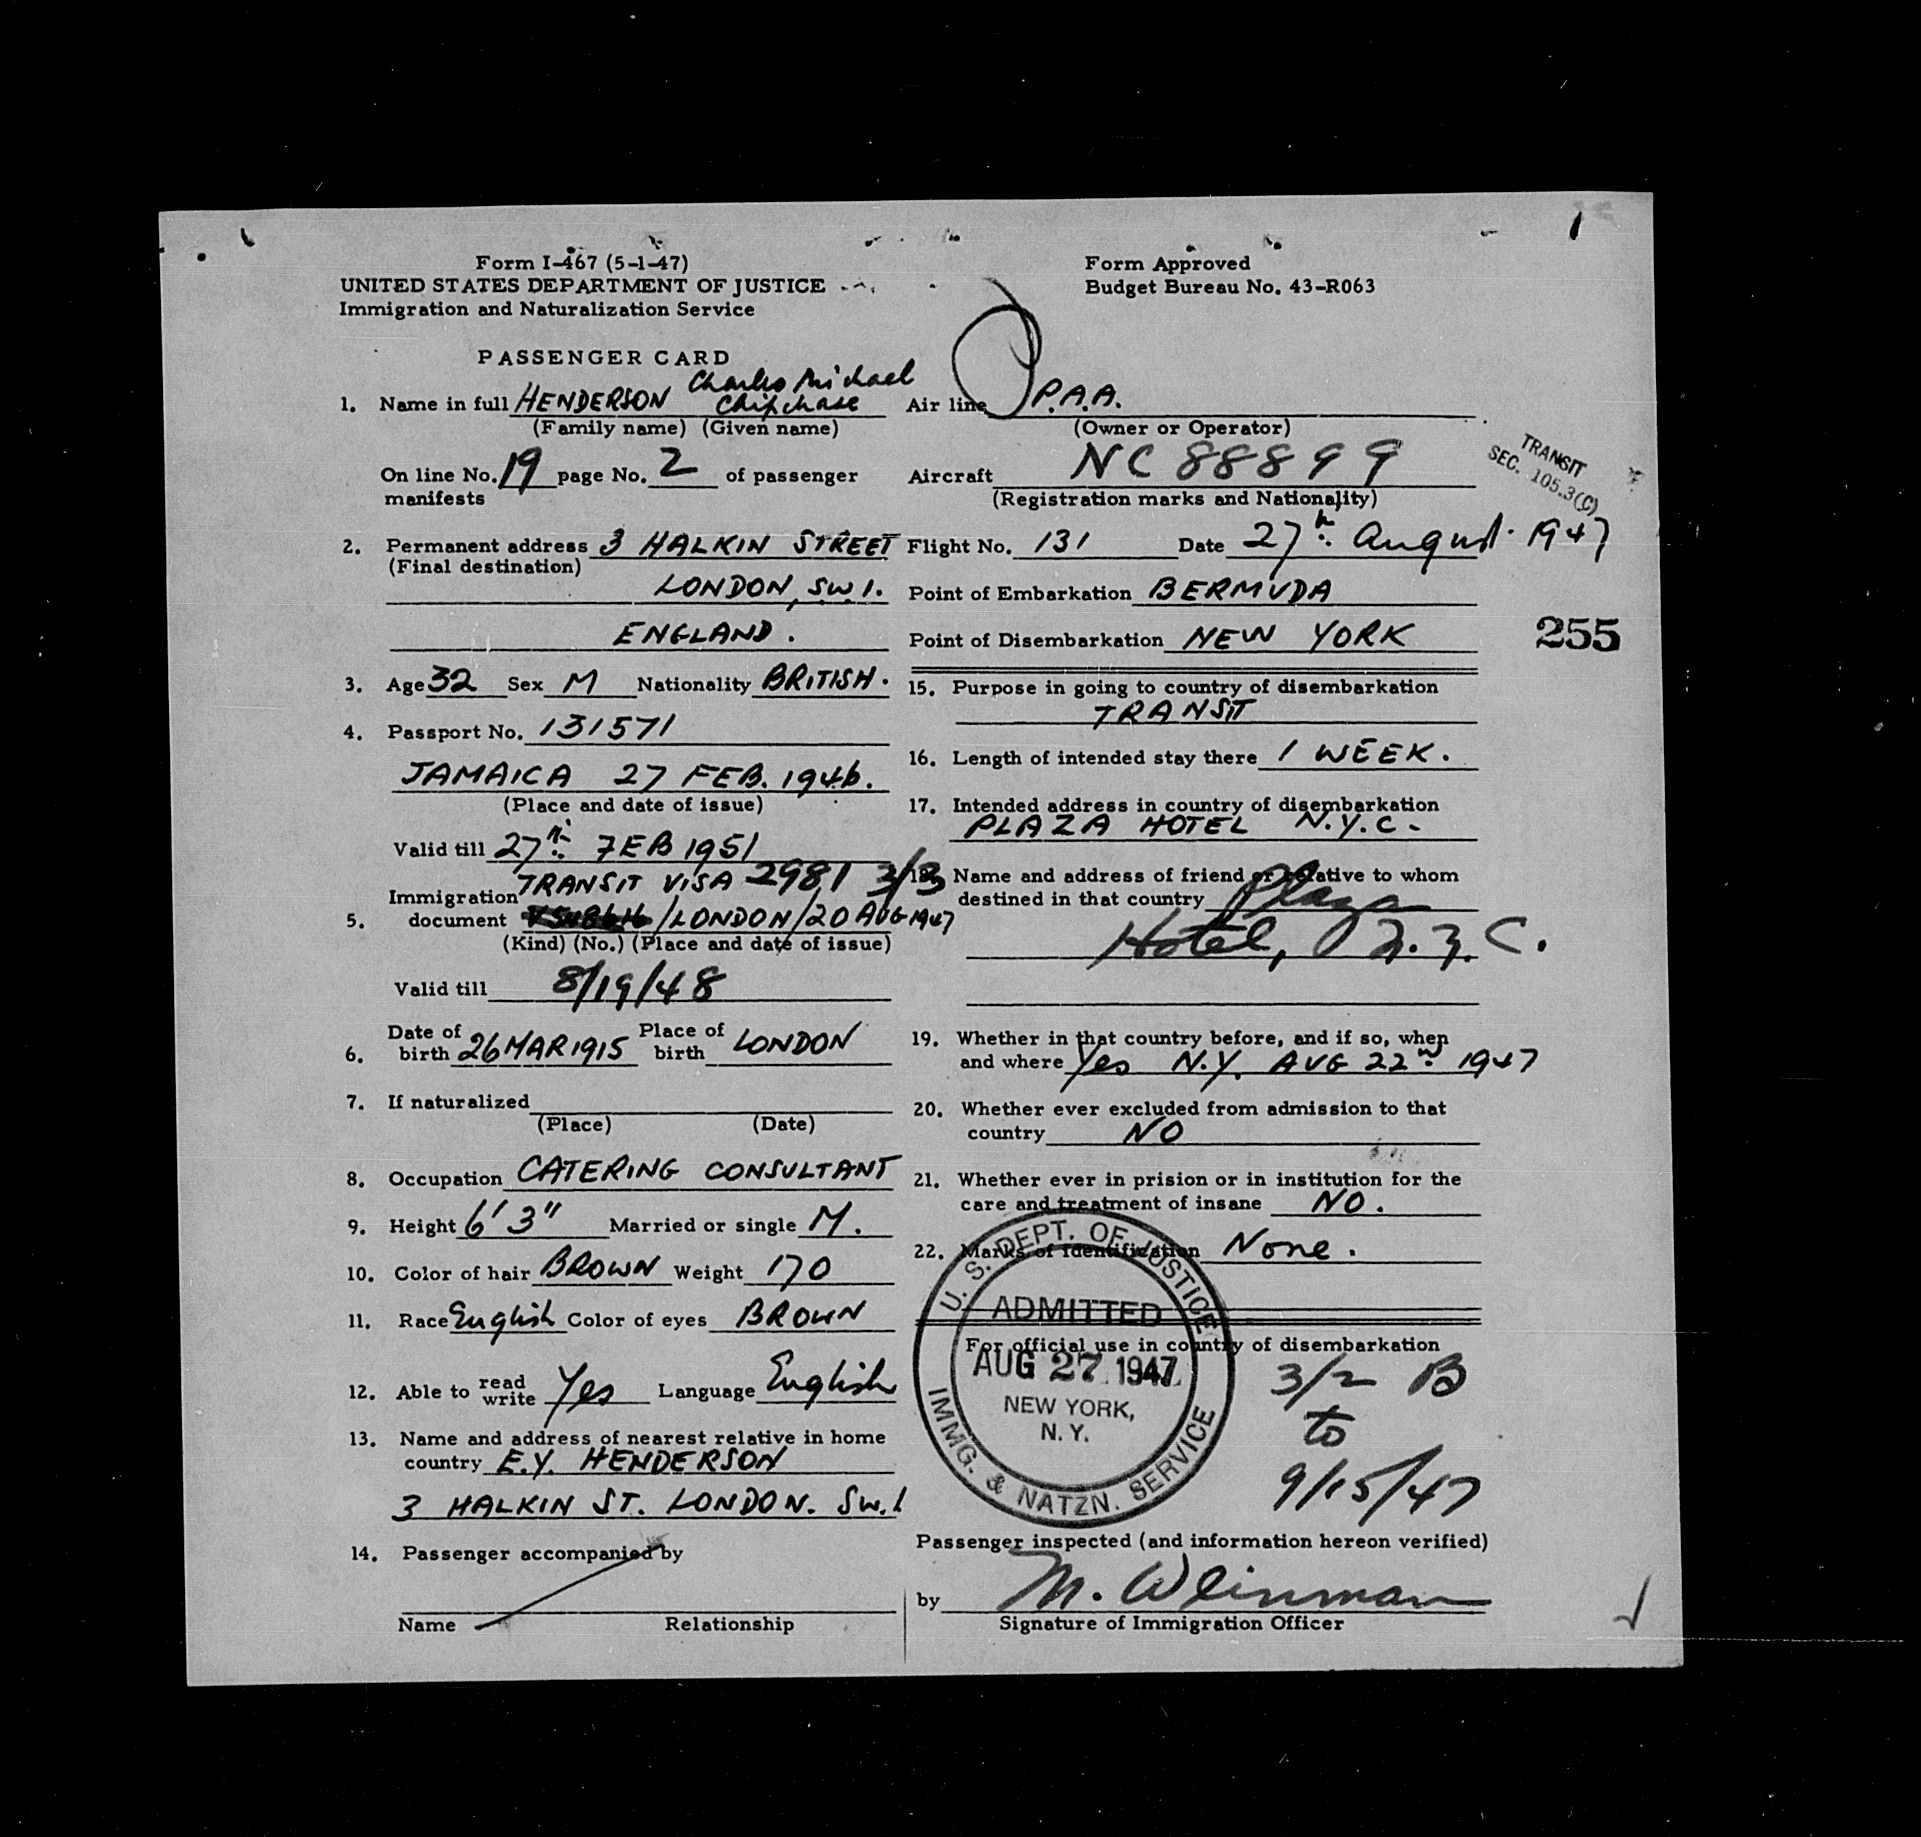 Form I-467 (5-1-47)
UNITED STATES DEPARTMENT OF JUSTICE
Immigration and Naturalization Service
PASSENGER CARD
Charles Michael
1. Name in full HENDERSON Chipchase
(Family name) (Given name)
On line No. 19 page No. 2 of passenger
manifests
2. Permanent address 3 HALKIN STREET
(Final destination)
LONDON, SW.1.
ENGLAND.
3. Age 32 Sex M Nationality BRITISH.
4. Passport No. 131571
JAMAICA 27 FEB. 1946.
(Place and date of issue)
Valid till 27th FEB 1951
Immigration TRANSIT VISA 2981 3/3
5. document /LONDON/20 AUG 1947
(Kind) (No.) (Place and date of issue)
Valid till 8/19/48
Date of Place of
6. birth 26 MAR 1915 birth LONDON
7. If naturalized
(Place) (Date)
8. Occupation CATERING CONSULTANT
9. Height 6' 3" Married or single M.
10. Color of hair BROWN Weight 170
11. Race English Color of eyes BROWN
12. Able to read write Yes Language English
13. Name and address of nearest relative in home
country E.Y. HENDERSON
3 HALKIN ST. LONDON. SW.1
14. Passenger accompanied by
Name Relationship
Form Approved
Budget Bureau No. 43-R063
Air line P.A.A.
(Owner or Operator)
Aircraft NC 88899
(Registration marks and Nationality)
TRANSIT
SEC. 105.3(C)
Flight No. 131 Date 27th August. 1947
Point of Embarkation BERMUDA
Point of Disembarkation NEW YORK
255
15. Purpose in going to country of disembarkation
TRANSIT
16. Length of intended stay there 1 WEEK.
17. Intended address in country of disembarkation
PLAZA HOTEL N.Y.C.
18. Name and address of friend or relative to whom
destined in that country Plaza
Hotel, N.Y.C.
19. Whether in that country before, and if so, when
and where Yes N.Y. AUG 22nd 1947
20. Whether ever excluded from admission to that
country NO
21. Whether ever in prision or in institution for the
care and treatment of insane NO.
22. Marks of Identification None.
U. S. DEPT. OF JUSTICE
ADMITTED
AUG 27 1947
NEW YORK,
N. Y.
IMMG. & NATZN. SERVICE
For official use in country of disembarkation
3/2 B
to
9/15/47
Passenger inspected (and information hereon verified)
by M. Weinman
Signature of Immigration Officer